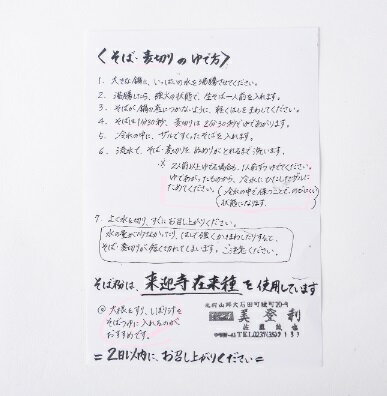 〈そば・麦切りのゆで方〉
1. 大きな鍋に、いっぱいの水を沸騰させてください。
2. 沸騰したら、強火の状態で、生そば一人前を入れます。
3. そばが鍋の底につかないように、軽くはしをまわしてください。
4. そばは1分30秒、麦切りは2分30秒でゆであがります。
5. 冷水の中に、ザルですくったそばを入れます。
6. 流水で、そば・麦切りを、ぬめりがとれるまで洗います。
※ 2人前以上ゆでる場合も、1人前ずつゆでてください。
ゆであがったものから、冷水にひたしたザルに
ためてください
冷水の中で保つことで、のびにくい
状態になります。
7. よく水を切り、すぐにお召し上がりください。
そば・麦切りが短く切れてしまいます。ご注意ください。
そば粉は、来迎寺在来種を使用しています
◎ 大根をすり、しぼり汁を
そばつゆに入れるのが
おすすめです。
美登利
=2日以内に、お召し上がりください=